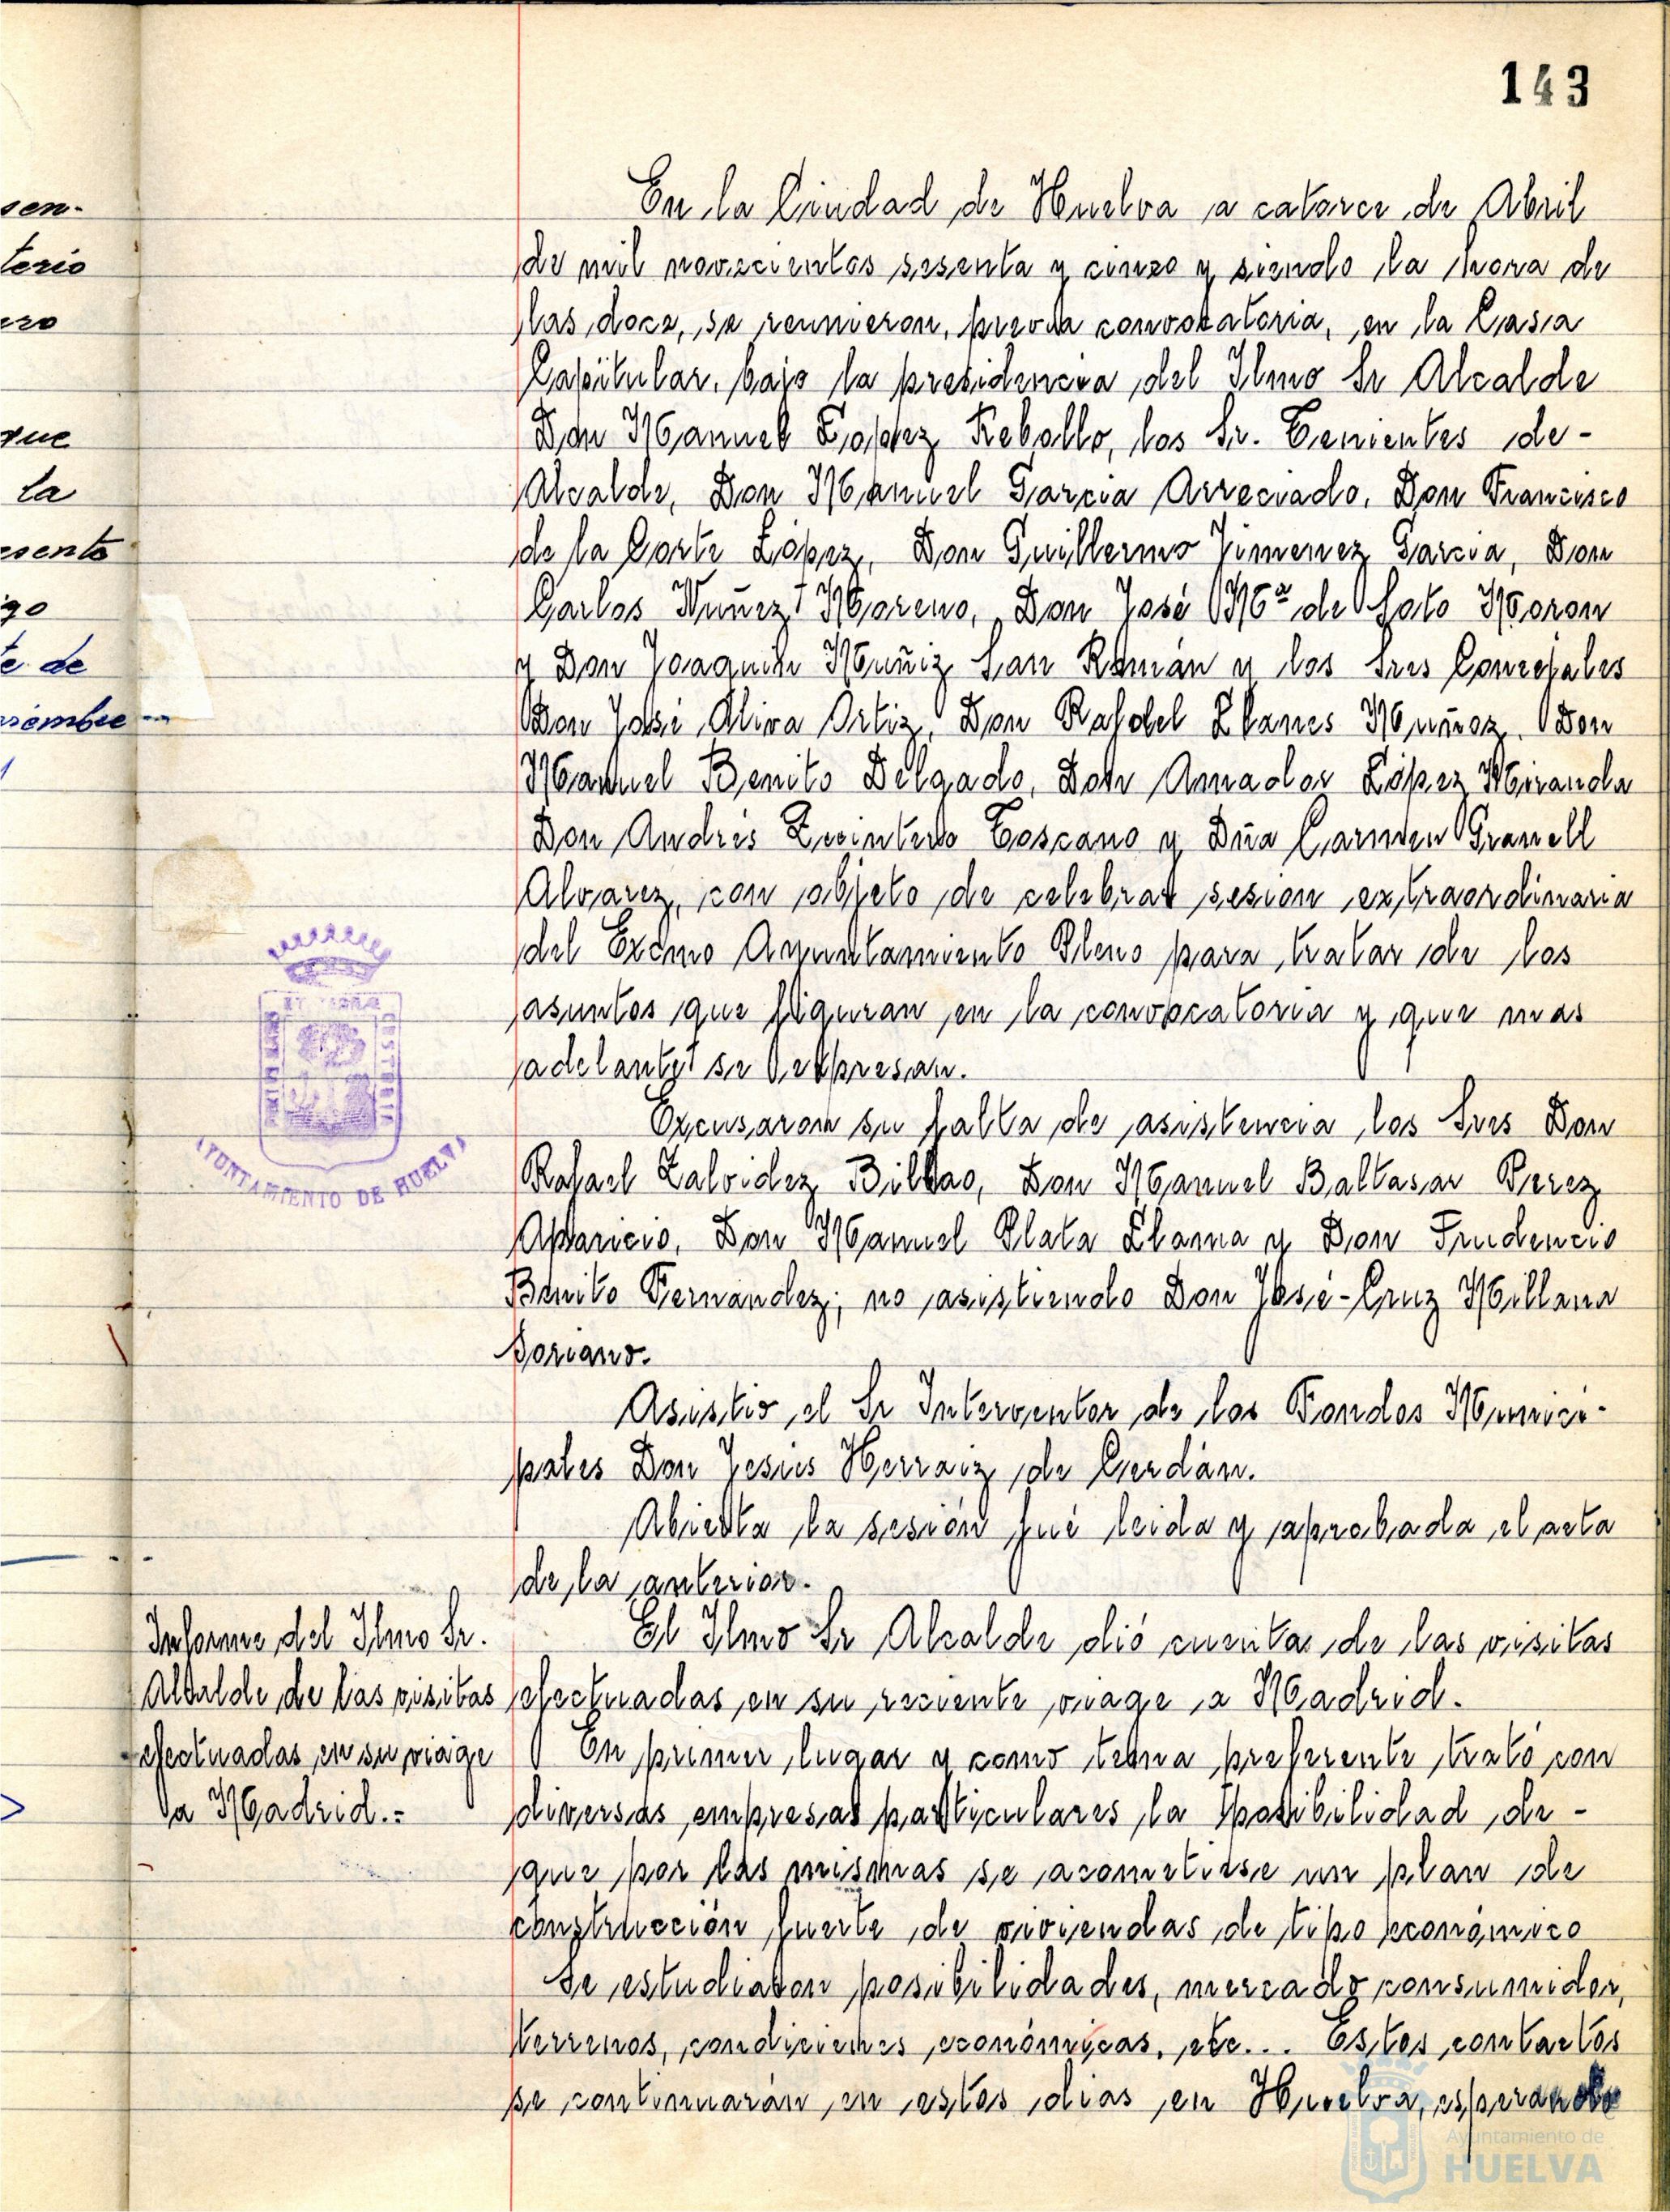 143
sen-
terio
ero
que
la
esente
igo
te de
viembre
En la Ciudad de Huelva a catorce de Abril
de mil novecientos sesenta y cinco y siendo la hora de
las doce, se reunieron, previa convocatoria, en la Casa
Capitular, bajo la presidencia del Ilmo Sr Alcalde
Don Manuel López Rebollo, los Sr. Tenientes de-
Alcalde, Don Manuel Garcia Arreciado, Don Francisco
de la Corte López, Don Guillermo Jimenez Garcia, Don
Carlos Nuñez Moreno, Don José Mª de Soto Moron
y Don Joaquin Muñiz San Román y los Sres Concejales
Don José Oliva Ortiz, Don Rafael Llanes Muñoz, Don
Manuel Benito Delgado, Don Amador López Miranda
Don Andrés Quintero Toscano y Dña Carmen Granell
Alvarez, con objeto de celebrar sesion extraordinaria
del Excmo Ayuntamiento Pleno para tratar de los
asuntos que figuran en la convocatoria y que mas
adelante se expresan.
Excusaron su falta de asistencia los Sres Don
Rafael Zalvidez Bilbao, Don Manuel Baltasar Perez
Aparicio, Don Manuel Plata Llanna y Don Prudencio
Benito Fernández; no asistiendo Don José-Cruz Millana
Soriano.
Asistió el Sr Interventor de los Fondos Munici-
pales Don Jesús Herraiz de Cerdán.
Abierta la sesión fué leida y aprobada el acta
de la anterior.
Informe del Ilmo Sr.
Alcalde de las visitas
efectuadas en su viage
a Madrid.=
El Ilmo Sr Alcalde dió cuenta de las visitas
efectuadas en su reciente viage a Madrid.
En primer lugar y como tema preferente trató con
diversas empresas particulares la posibilidad de-
que por las mismas se acometiese un plan de
construcción fuerte de viviendas de tipo económico
Se estudiaron posibilidades, mercado consumidor,
terrenos, condiciones económicas, etc... Estos contactos
se continuarán en estos dias en Huelva, esperando
AYUNTAMIENTO DE HUELVA
Ayuntamiento de
HUELVA